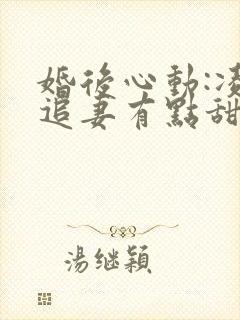 婚後心動:凌
追妻有點甜
湯继穎